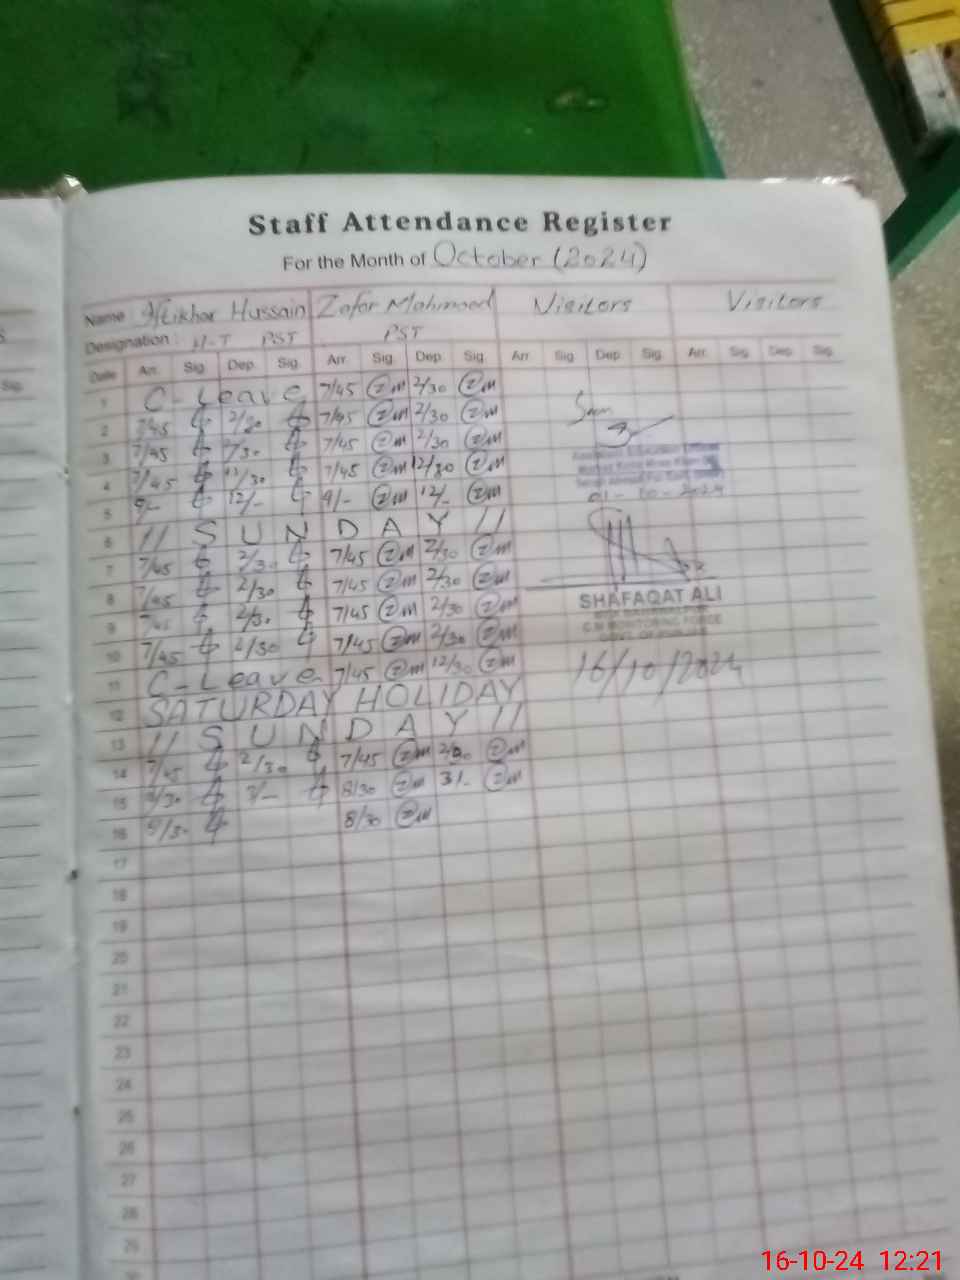 Staff Attendance Register
For the Month of October (2024)
Name Iftikhar Hussain Zafar Mahmood Visitors Visitors
Designation: H-T PST PST
Date Arr. Sig. Dep. Sig. Arr. Sig. Dep. Sig. Arr. Sig. Dep. Sig. Arr. Sig. Dep. Sig.
1 C-Leave 7/45 zm 2/30 zm
2 7/45 2/30 7/45 zm 2/30 zm
3 7/45 2/30 7/45 zm 2/30 zm
4 7/45 12/30 7/45 zm 12/30 zm
5 9/- 12/- 9/- zm 12/- zm
01-10-2024
6 // SUNDAY //
7 7/45 2/30 7/45 zm 2/30 zm
8 7/45 2/30 7/45 zm 2/30 zm
9 7/45 2/30 7/45 zm 2/30 zm
SHAFAQAT ALI
C.M MONITORING FORCE
10 7/45 2/30 7/45 zm 2/30 zm
11 C-Leave 7/45 zm 12/30 zm
16/10/2024
12 SATURDAY HOLIDAY
13 // SUNDAY //
14 7/45 2/30 7/45 zm 2/30 zm
15 8/30 3/- 8/30 zm 3/- zm
16 8/30 8/30 zm
17
18
19
20
21
22
23
24
25
26
27
28
29
16-10-24 12:21